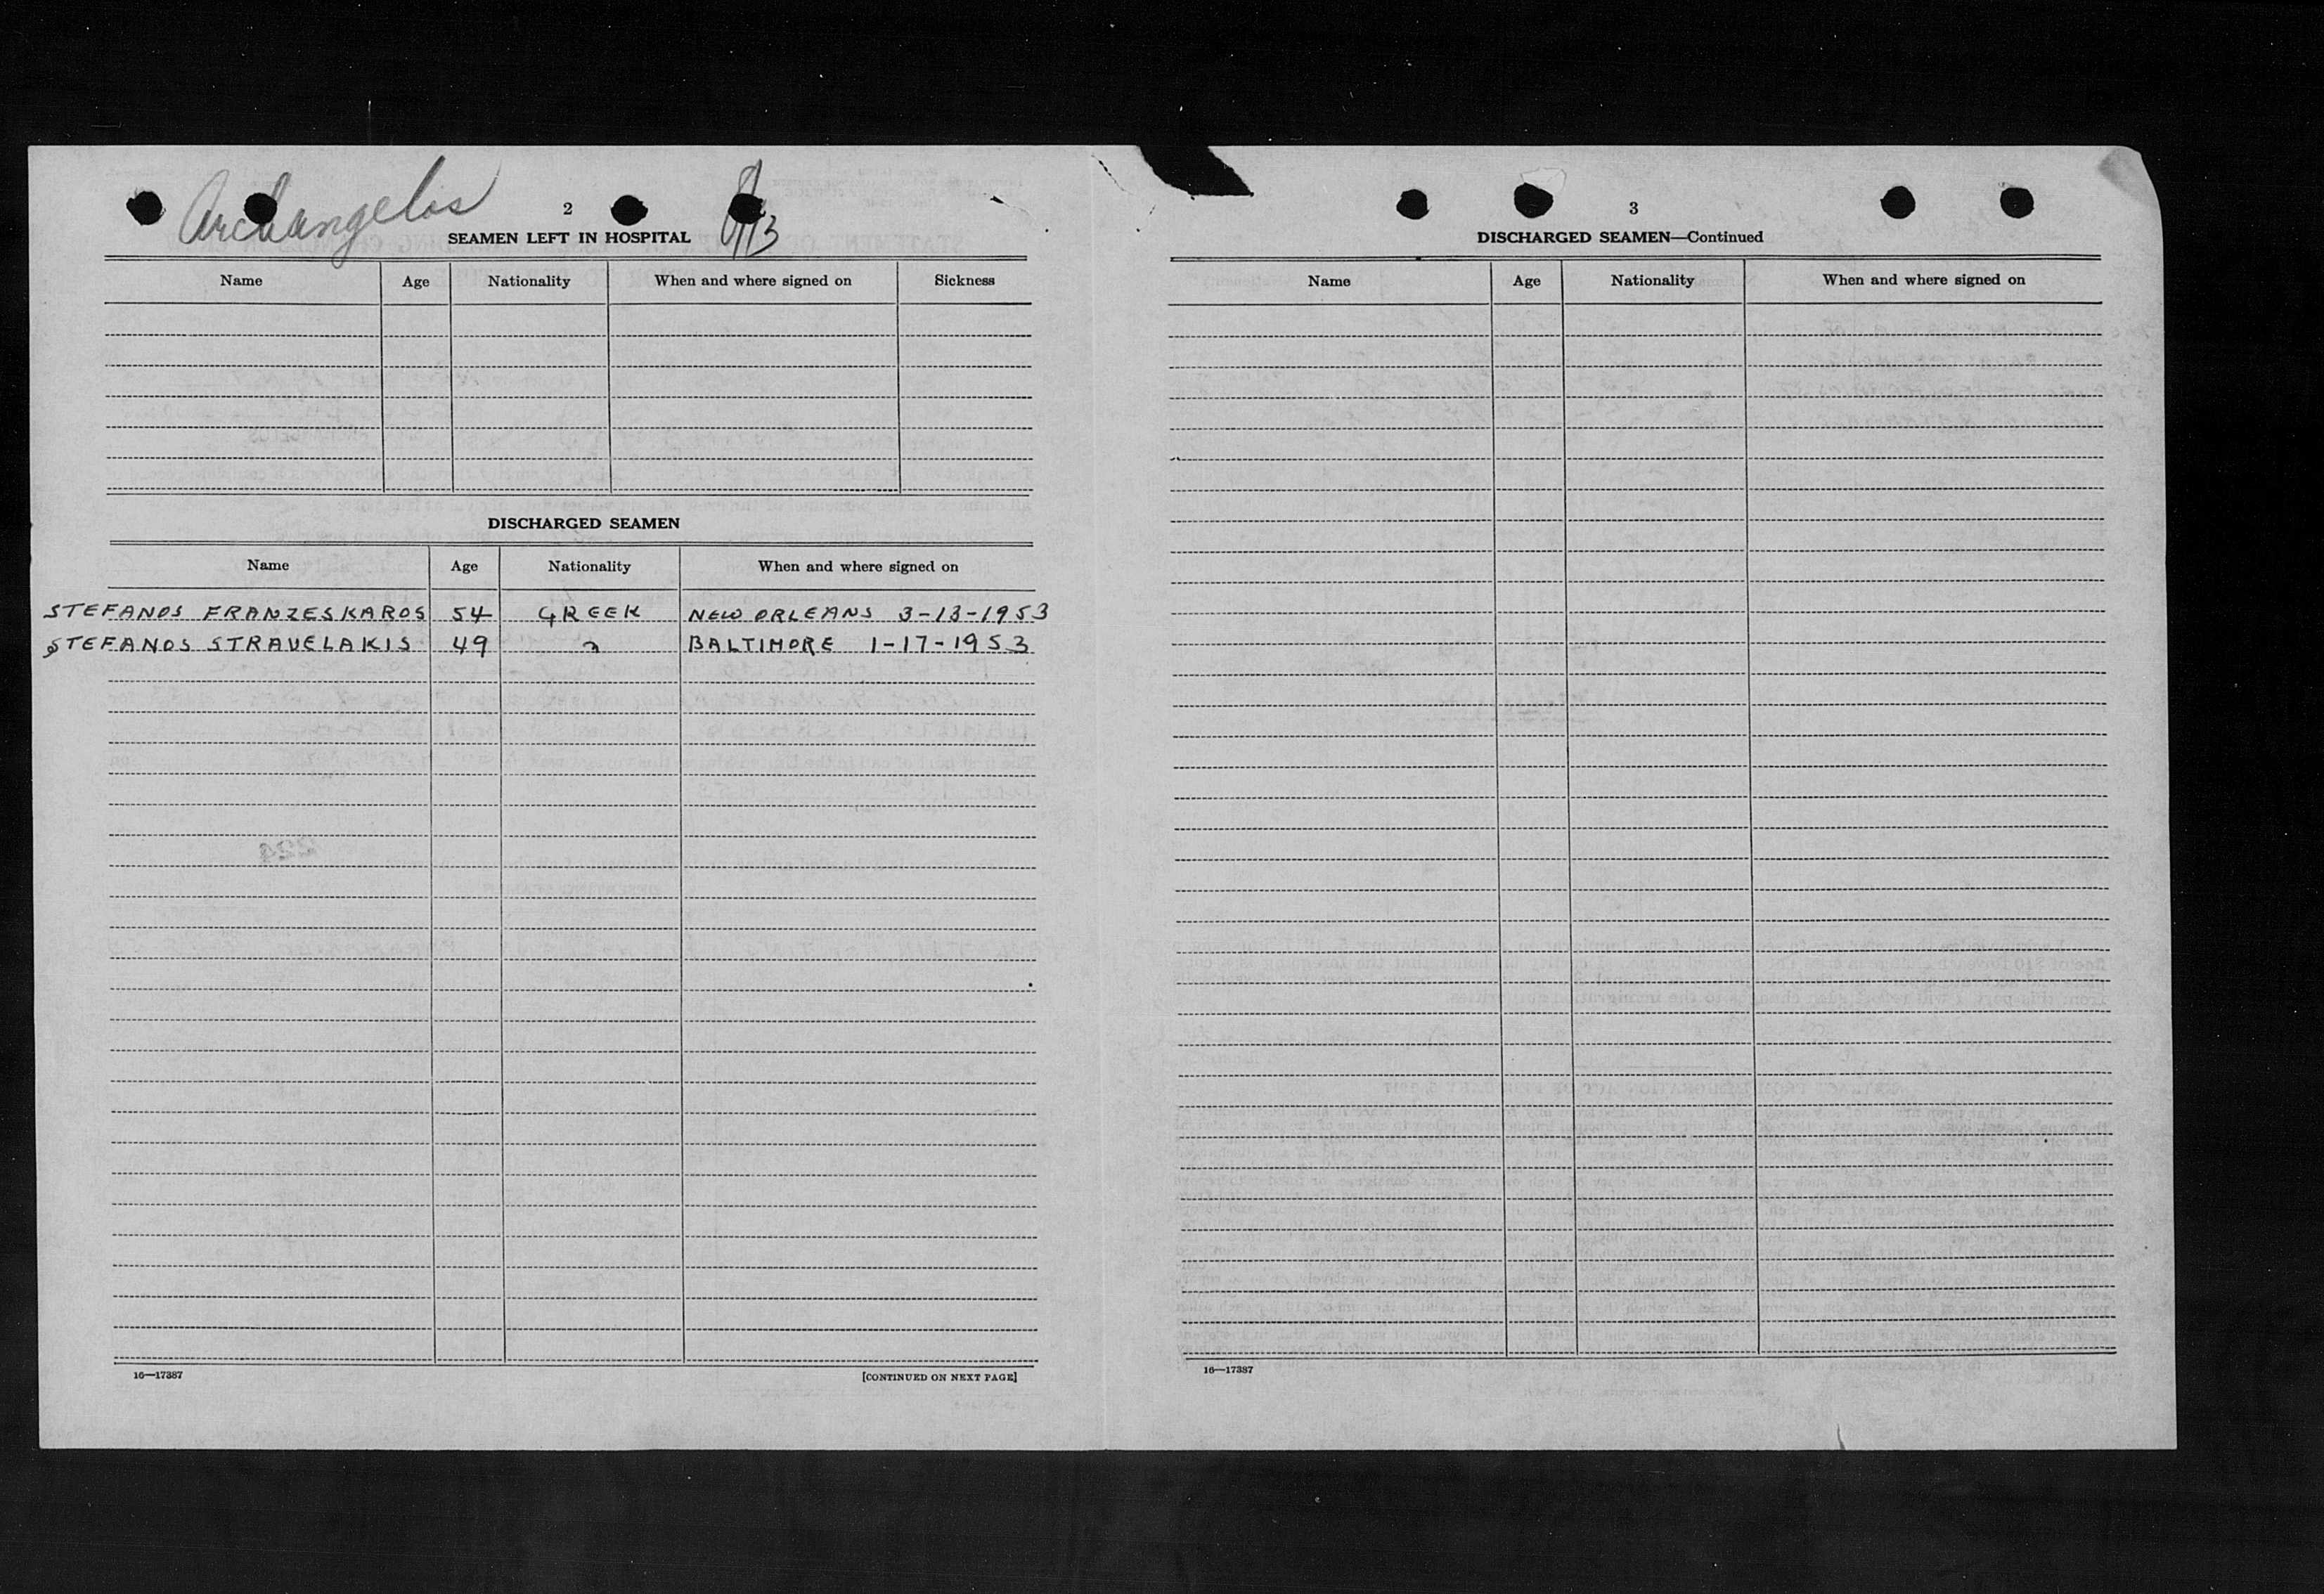 Archangelos
2
SEAMEN LEFT IN HOSPITAL
Name Age Nationality When and where signed on Sickness
DISCHARGED SEAMEN
Name Age Nationality When and where signed on
STEFANOS FRANZESKAROS 54 GREEK NEW ORLEANS 3-13-1953
STEFANOS STRAVELAKIS 49 " BALTIMORE 1-17-1953
16—17387 [CONTINUED ON NEXT PAGE]
3
DISCHARGED SEAMEN—Continued
Name Age Nationality When and where signed on
16—17387